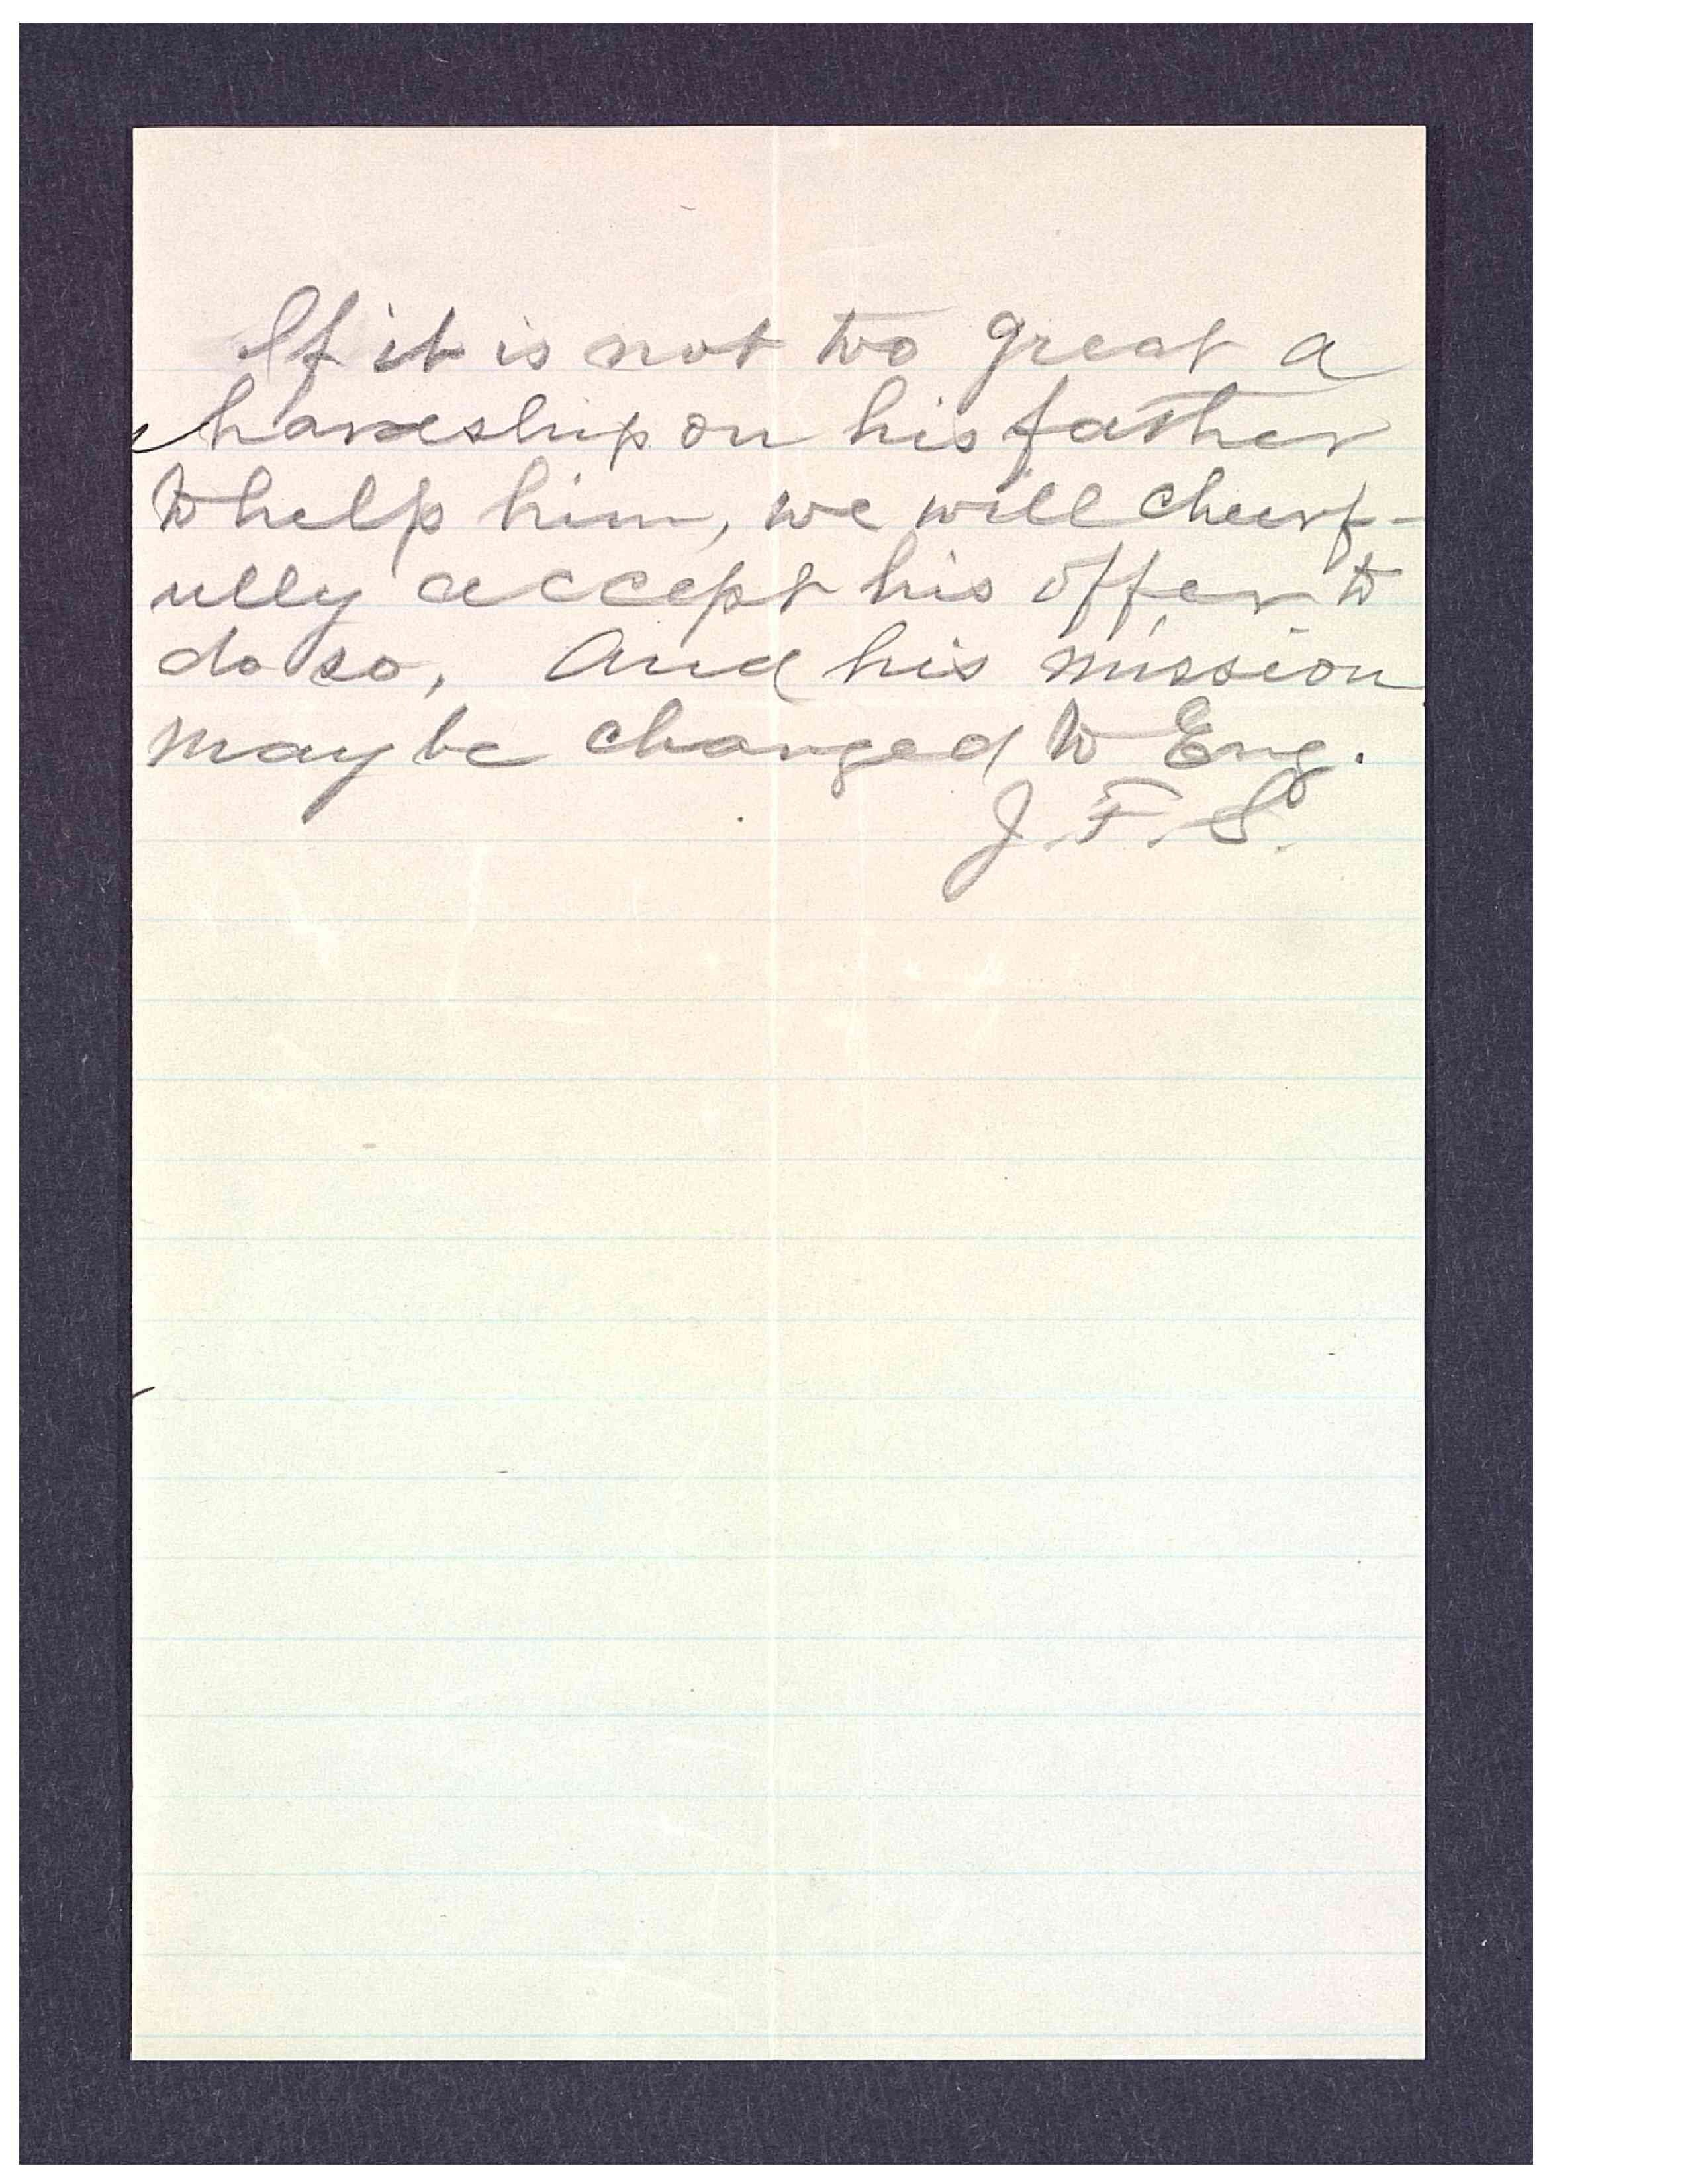 If it is not too great a
hardship on his father
to help him, we will cheerf-
ully accept his offer to
do so, And his mission
may be changed to Eng.
J. F. S.